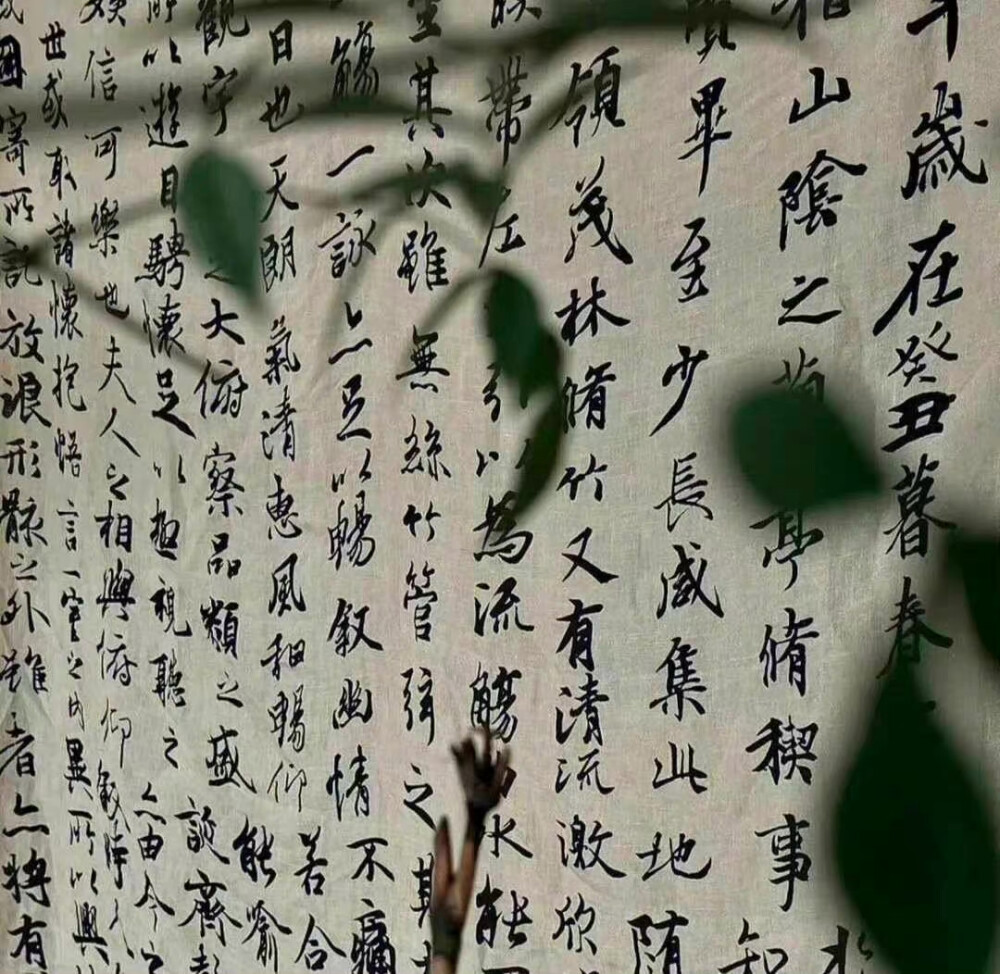 年歲在癸丑暮春
山陰之蘭亭脩稧事
賢畢至少長咸集此地隨
領茂林脩竹又有清流激欣
帶左引以為流觴水能不
至其次雖無絲竹管弦之其
觴一詠亦足以暢敘幽情不痛
日也天朗氣清惠風和暢仰若合
觀宇之大俯察品類之盛能喻
所以遊目騁懷足以極視聽之談齊
娛信可樂也夫人之相與俯仰亦由今之
世或取諸懷抱悟言一室之內異所以興
因寄所託放浪形骸之外雖者亦將有